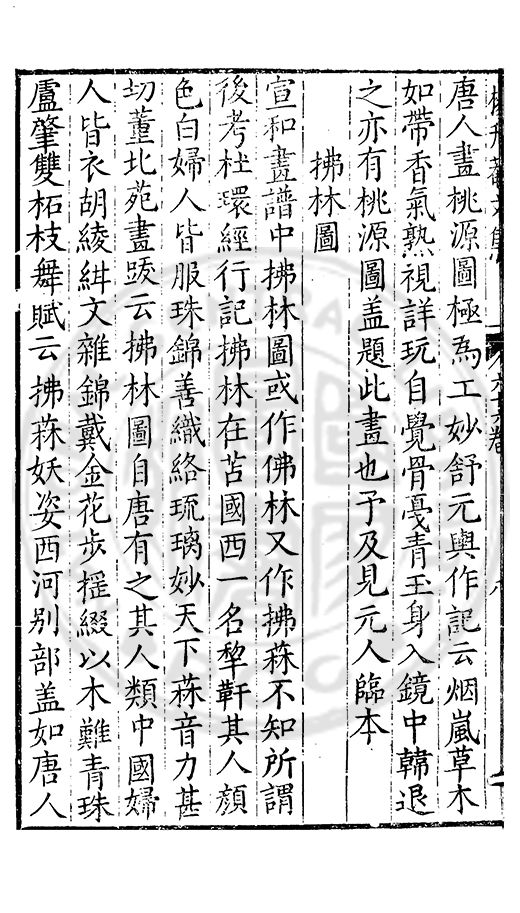 唐人畫桃源圖極爲工妙舒元輿作記云烟嵐草木
如帶香氣熟視詳玩自覺骨戞青玉身入鏡中韓退
之亦有桃源圖盖題此畫也予及見元人臨本
拂林圖
宣和畫譜中拂林圖或作佛林又作拂菻不知所謂
後考杜環經行記拂林在苫國西一名犂靬其人顔
色白婦人皆服珠錦善織絡琉璃妙天下菻音力甚
切董北苑畫䟦云拂林圖自唐有之其人類中國婦
人皆衣胡綾緋文雜錦戴金花步摇綴以木難青珠
盧肇雙柘枝舞賦云拂菻妖姿西河别部盖如唐人
六十六卷